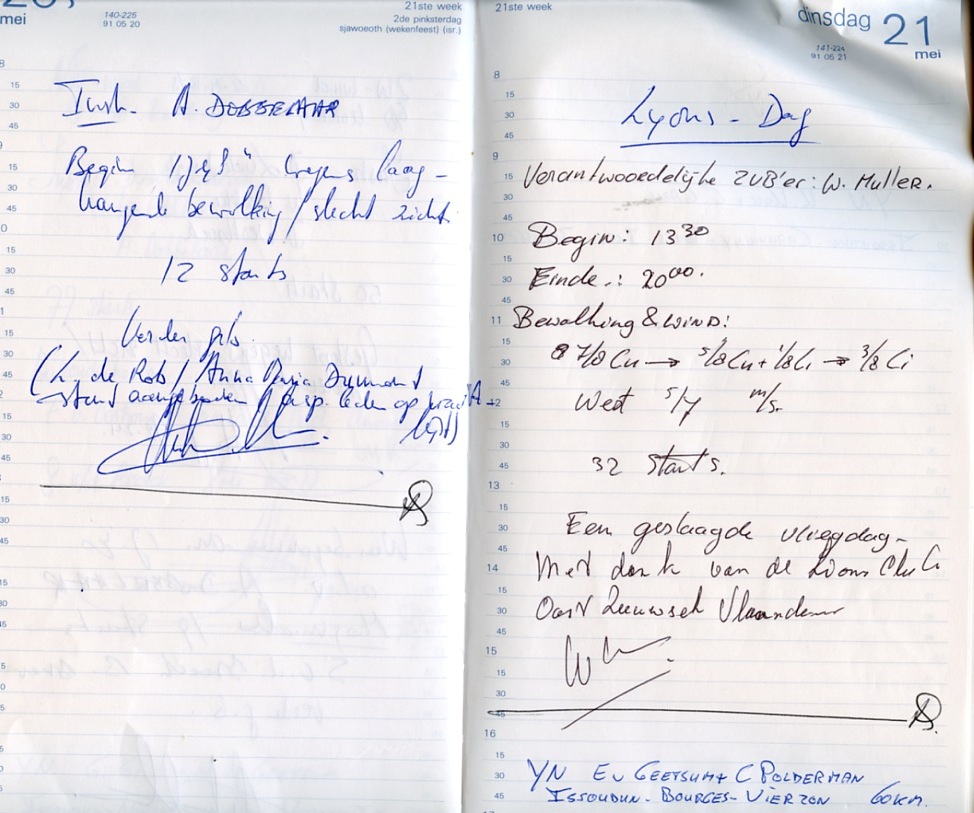 mei
140-225
91 05 20
21ste week
2de pinksterdag
sjawoeoth (wekenfeest) (isr.)
Instr. A. DOBBELAAR
Begin wegens laag-
hangende bewolking / slecht zicht.
12 starts
Verder geb.
(L. de Rob / Anna Maria
stand aangeboden leden op
21ste week
dinsdag 21
mei
141-224
91 05 21
Lyons - Dag
Verantwooedelijke ZUB'er: W. Muller.
Begin: 13 30
Einde.: 20 00.
Bewolking & WIND:
7/8 Cu → 5/8 Cu + 1/8 Ci → 3/8 Ci
West 5/7 m/s.
32 starts.
Een geslaagde vliegdag-
Met dank van de Lions Club
Oost Zeeuwsch Vlaanderen
YN EV GEETSUM + C POLDERMAN
ISSOUDUN - BOURGES - VIERZON 60 km.